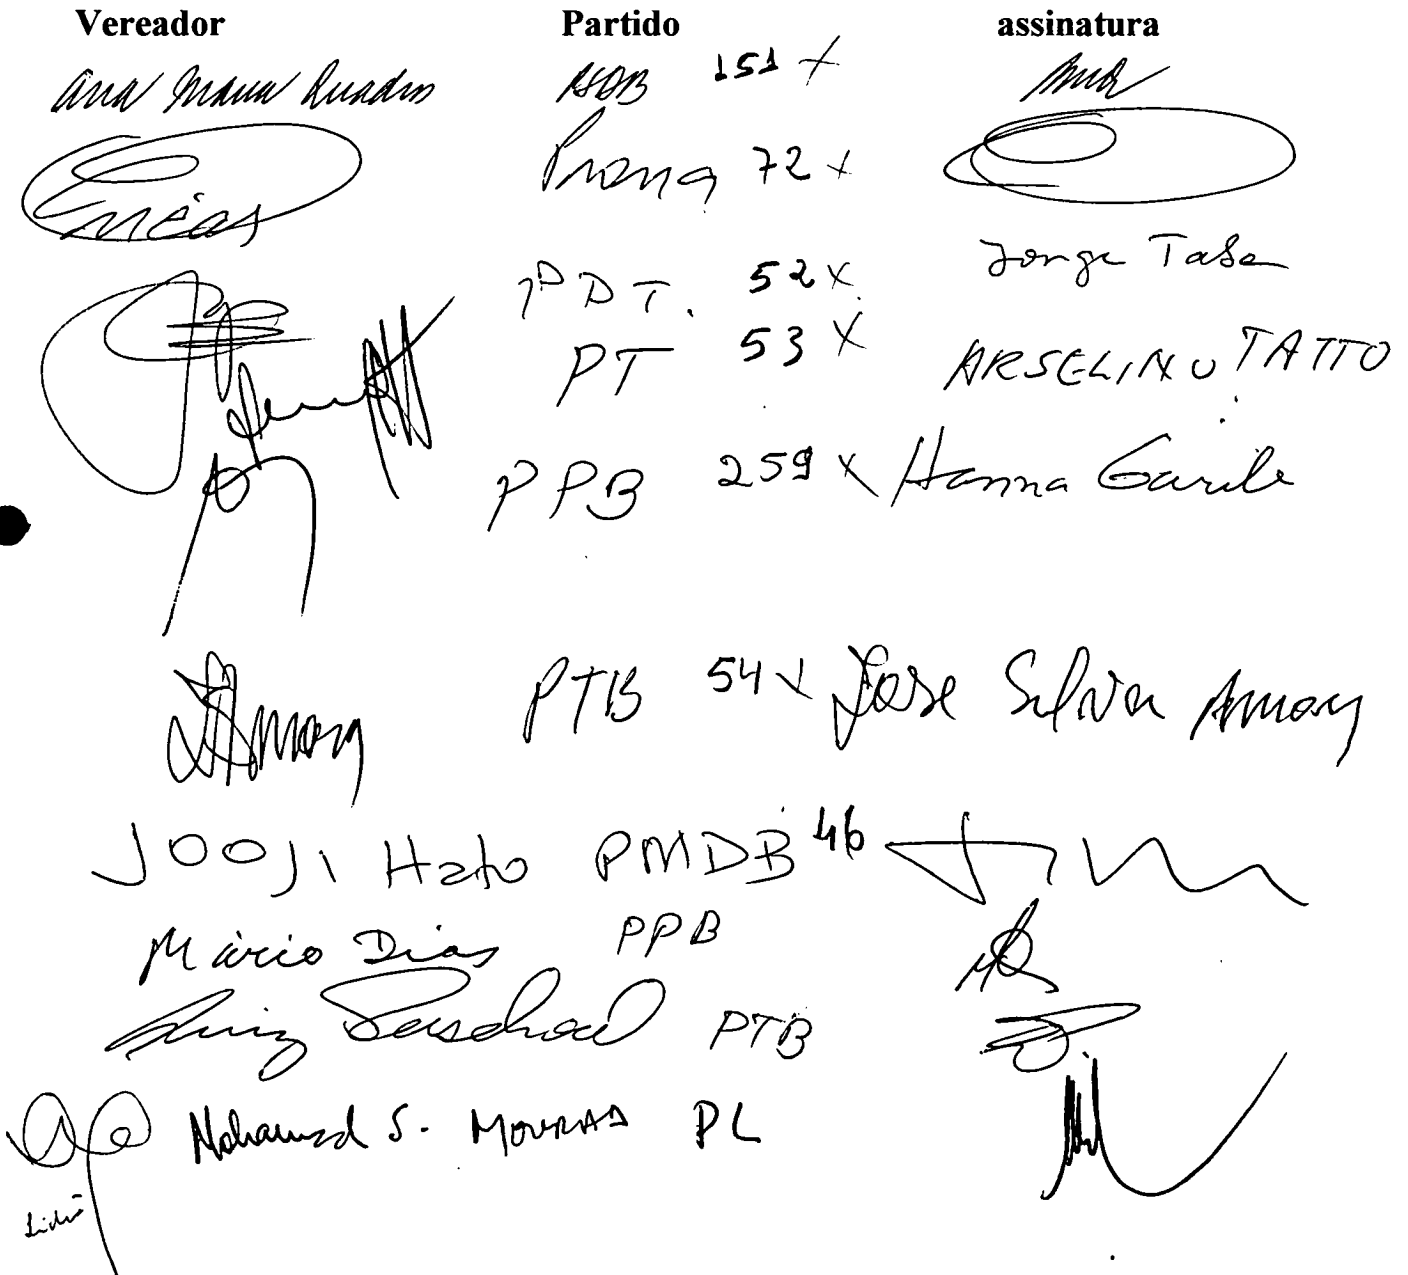 Vereador Partido assinatura
Ana Maria Quadros PSDB 151 x
Enéas Prona 72 x
PDT. 52 x Jorge Taba
PT 53 x ARSELINO TATTO
PPB 259 x Hanna Garib
PTB 54 x Jose Silva Amary
JOOJI Hato PMDB 46
Mário Dias PPB
Luiz Paschoal PTB
Mohamad S. MOURAD PL